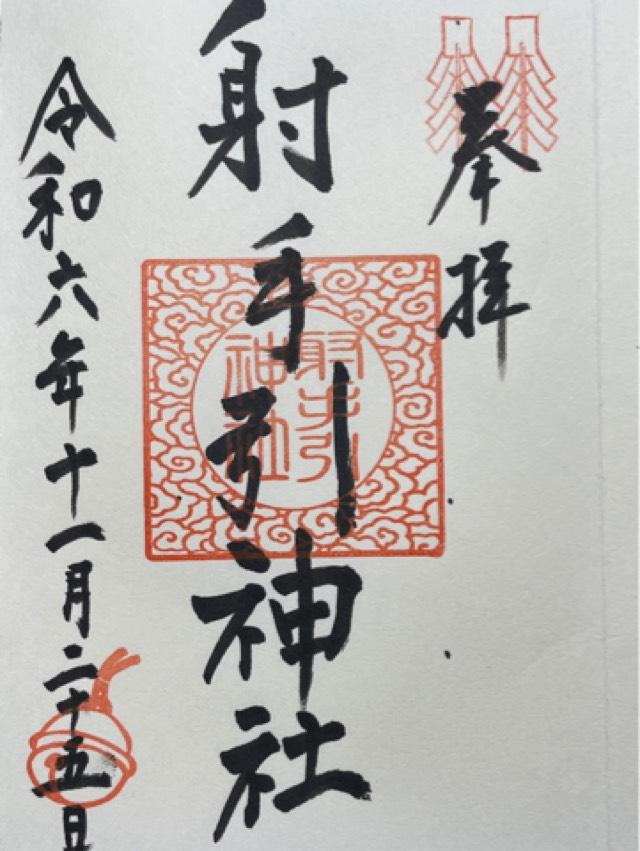 奉拝
射手引神社
射手引神社
令和六年十一月二十五日